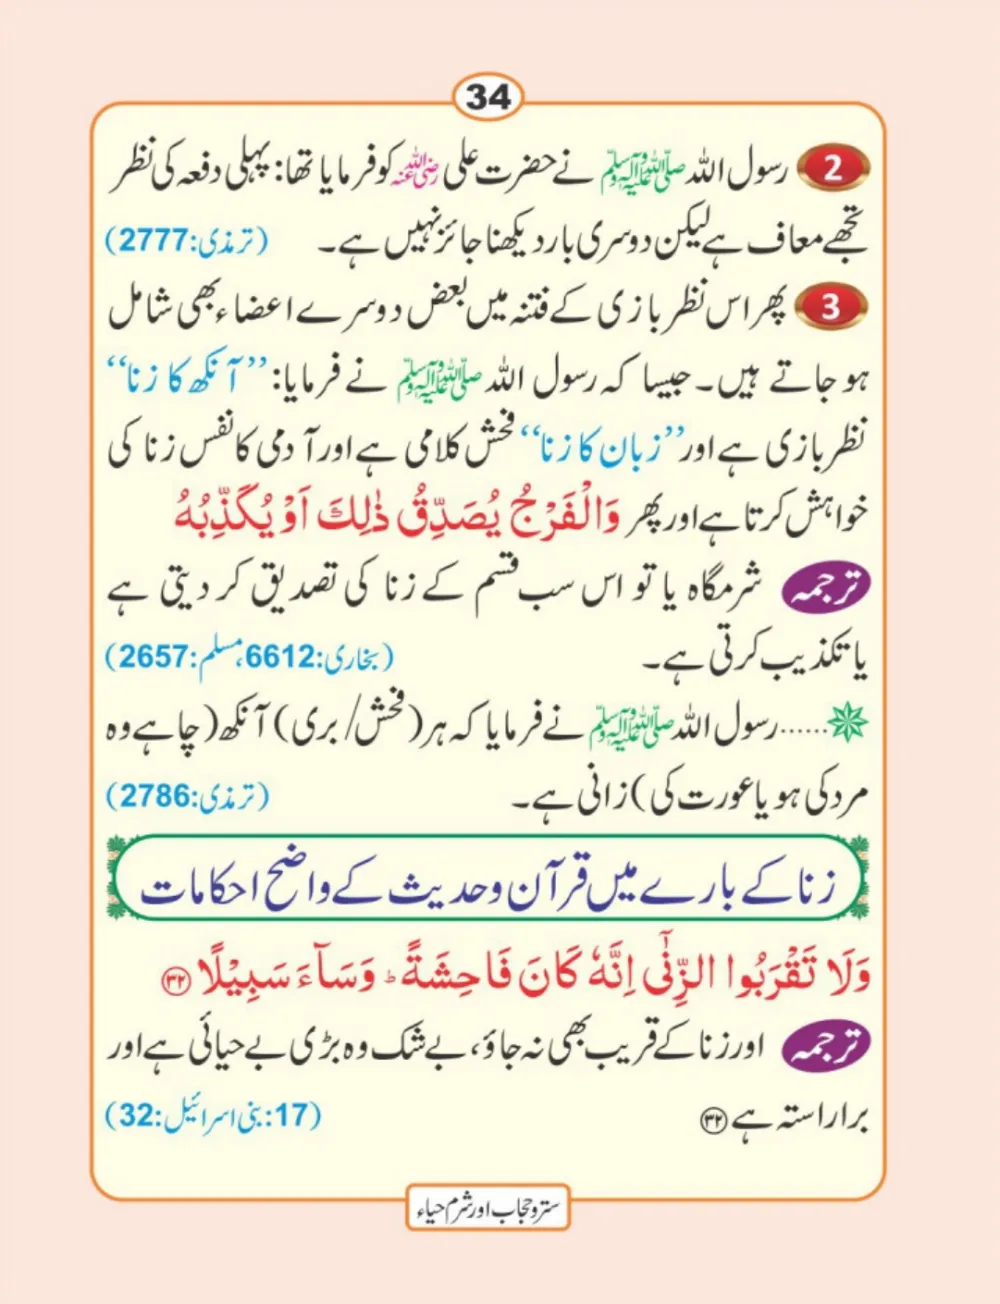 34
2 رسول اللہ ﷺ نے حضرت علی رضی اللہ عنہ کو فرمایا تھا: پہلی دفعہ کی نظر
تجھے معاف ہے لیکن دوسری بار دیکھنا جائز نہیں ہے۔ (ترمذی:2777)
3 پھر اس نظر بازی کے فتنہ میں بعض دوسرے اعضاء بھی شامل
ہو جاتے ہیں۔ جیسا کہ رسول اللہ ﷺ نے فرمایا: ”آنکھ کا زنا“
نظر بازی ہے اور ”زبان کا زنا“ فحش کلامی ہے اور آدمی کا نفس زنا کی
خواہش کرتا ہے اور پھر وَالْفَرْجُ يُصَدِّقُ ذٰلِكَ اَوْ يُكَذِّبُهُ
ترجمہ شرمگاہ یا تو اس سب قسم کے زنا کی تصدیق کر دیتی ہے
یا تکذیب کرتی ہے۔ (بخاری:6612، مسلم:2657)
...... رسول اللہ ﷺ نے فرمایا کہ ہر (فحش/بری) آنکھ (چاہے وہ
مرد کی ہو یا عورت کی) زانی ہے۔ (ترمذی:2786)
زنا کے بارے میں قرآن و حدیث کے واضح احکامات
وَلَا تَقْرَبُوا الزِّنٰٓى اِنَّهٗ كَانَ فَاحِشَةً ؕ وَسَآءَ سَبِيْلًا ۳۲
ترجمہ اور زنا کے قریب بھی نہ جاؤ، بے شک وہ بڑی بے حیائی ہے اور
برا راستہ ہے ۳۲ (17:بنی اسرائیل:32)
ستر و حجاب اور شرم حیاء